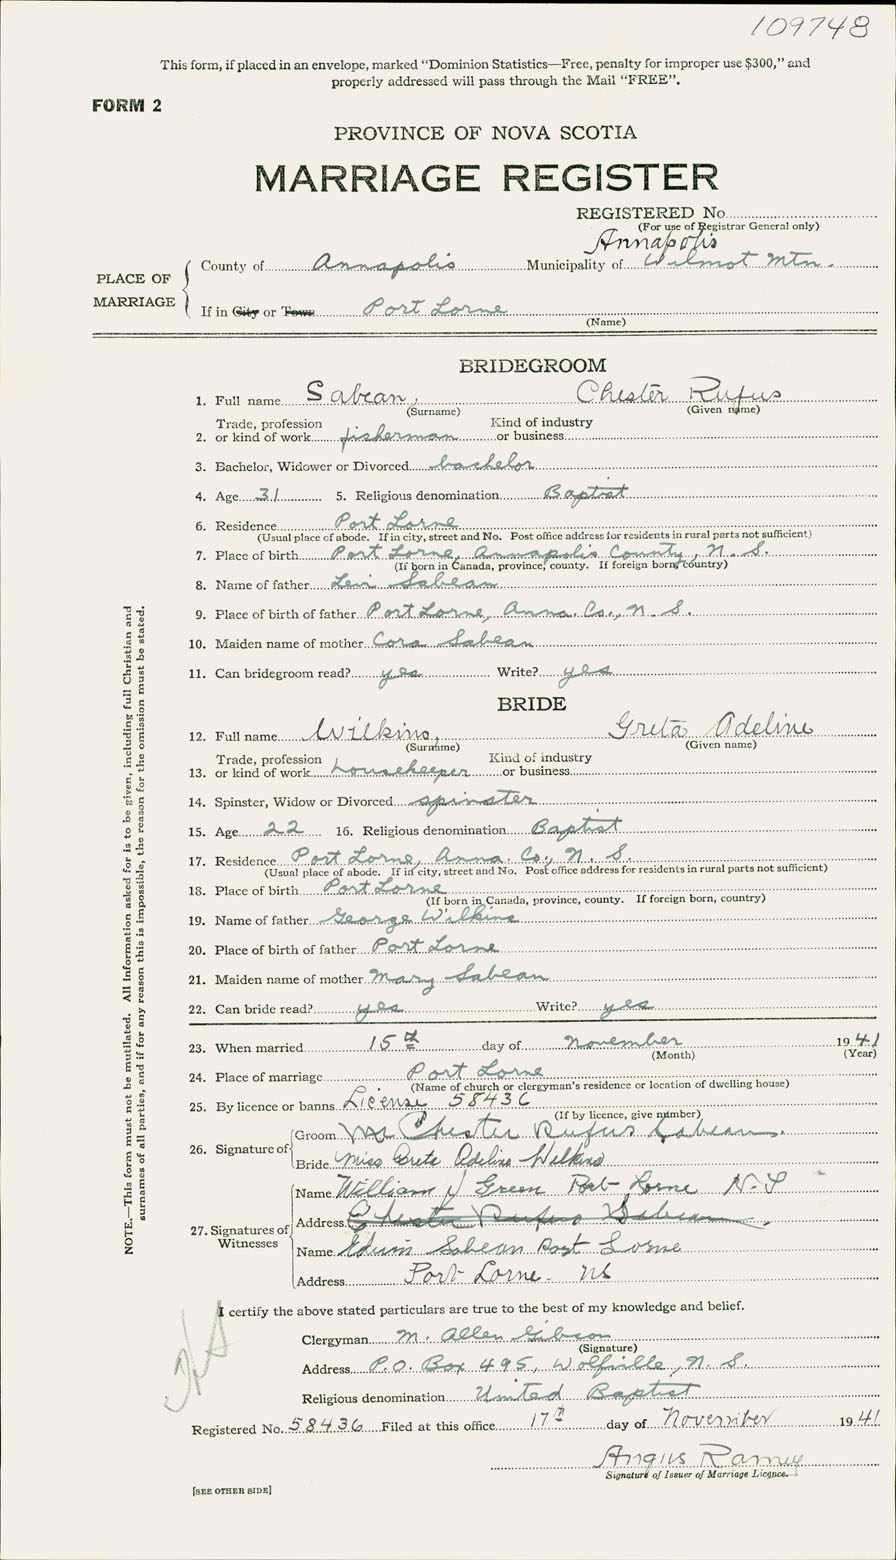 109748
This form, if placed in an envelope, marked “Dominion Statistics—Free, penalty for improper use $300,” and
properly addressed will pass through the Mail “FREE”.
FORM 2
PROVINCE OF NOVA SCOTIA
MARRIAGE REGISTER
REGISTERED No.
(For use of Registrar General only)
Annapolis
PLACE OF MARRIAGE
County of Annapolis Municipality of Wilmot Mtn.
If in City or Town Port Lorne
(Name)
BRIDEGROOM
1. Full name Sabean, Chester Rufus
(Surname) (Given name)
Trade, profession Kind of industry
2. or kind of work fisherman or business
3. Bachelor, Widower or Divorced bachelor
4. Age 31 5. Religious denomination Baptist
6. Residence Port Lorne
(Usual place of abode. If in city, street and No. Post office address for residents in rural parts not sufficient)
7. Place of birth Port Lorne, Annapolis County, N. S.
(If born in Canada, province, county. If foreign born, country)
8. Name of father Levi Sabean
9. Place of birth of father Port Lorne, Anna. Co., N. S.
10. Maiden name of mother Cora Sabean
11. Can bridegroom read? yes Write? yes
BRIDE
12. Full name Wilkins, Greta Adeline
(Surname) (Given name)
Trade, profession Kind of industry
13. or kind of work housekeeper or business
14. Spinster, Widow or Divorced spinster
15. Age 22 16. Religious denomination Baptist
17. Residence Port Lorne, Anna. Co., N. S.
(Usual place of abode. If in city, street and No. Post office address for residents in rural parts not sufficient)
18. Place of birth Port Lorne
(If born in Canada, province, county. If foreign born, country)
19. Name of father George Wilkins
20. Place of birth of father Port Lorne
21. Maiden name of mother Mary Sabean
22. Can bride read? yes Write? yes
23. When married 15th day of November 1941
(Month) (Year)
24. Place of marriage Port Lorne
(Name of church or clergyman's residence or location of dwelling house)
25. By licence or banns License 58436
(If by licence, give number)
26. Signature of
Groom Mr Chester Rufus Sabean.
Bride Miss Greta Adeline Wilkins
27. Signatures of Witnesses
Name William J Green Port Lorne N.S
Address Chester Rufus Sabean
Name Edwin Sabean Port Lorne
Address Port Lorne. NS
I certify the above stated particulars are true to the best of my knowledge and belief.
Clergyman M. Allen Gibson
(Signature)
Address P.O. Box 495, Wolfville, N. S.
Religious denomination United Baptist
Registered No. 58436 Filed at this office 17th day of November 1941
Angus Ramey
Signature of Issuer of Marriage Licence.
[SEE OTHER SIDE]
NOTE.—This form must not be mutilated. All information asked for is to be given, including full Christian and
surnames of all parties, and if for any reason this is impossible, the reason for the omission must be stated.